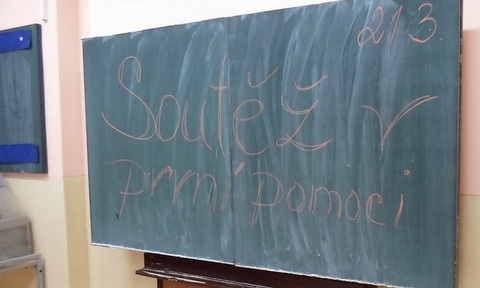 21.3.
Soutěž v
první pomoci